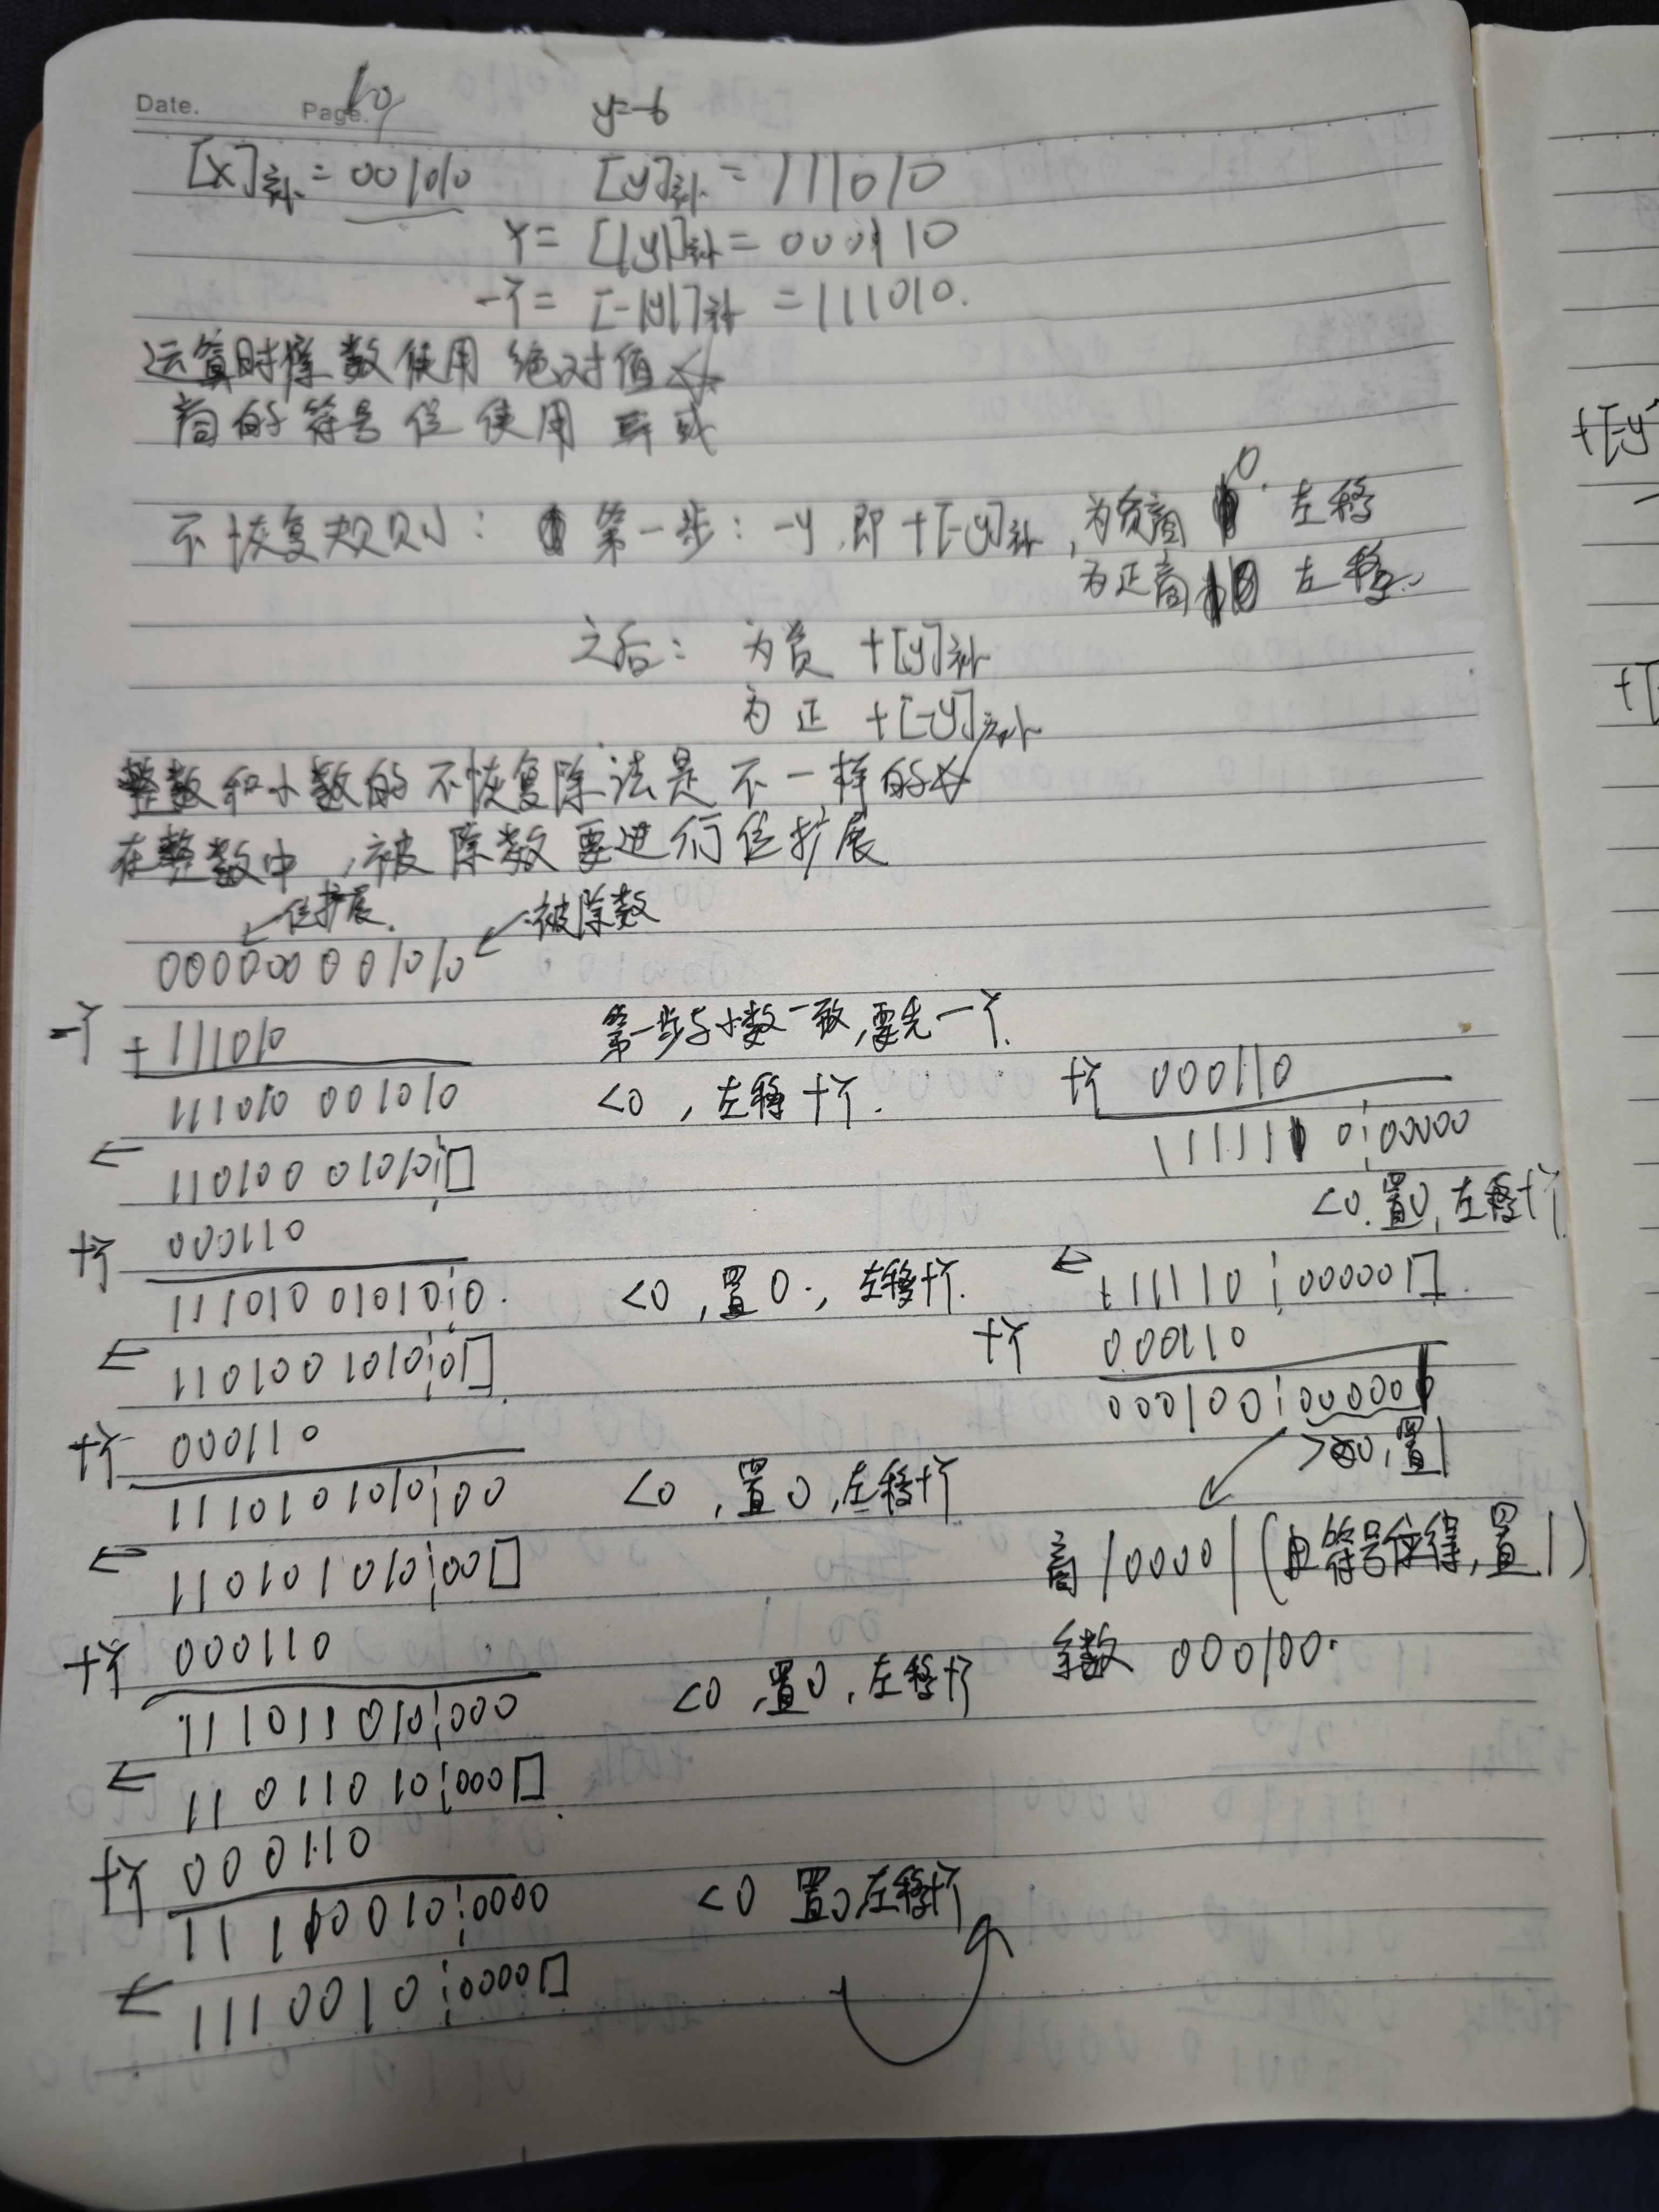 Date. Page. 10
y=-6
[x]补 = 001010 [y]补 = 111010
Y = [|y|]补 = 000110
-Y = [-|y|]补 = 111010.
运算时除数使用绝对值☆
商的符号位使用异或
不恢复规则: 第一步: -y, 即+[-y]补, 为负商0. 左移
为正商1 左移.
之后: 为负 +[y]补
为正 +[-y]补
整数和小数的不恢复除法是不一样的☆
在整数中,被除数要进行位扩展
←位扩展. ←被除数
000000 001010
-Y +111010 第一步与小数一致,要先-Y.
111010 001010 <0, 左移+Y.
← 110100 01010¦□
+Y 000110
111010 01010¦0. <0, 置0., 左移+Y.
← 110100 1010¦0□
+Y 000110
111010 1010¦00 <0, 置0, 左移+Y
← 110101 010¦00□
+Y 000110
111011 010¦000 <0, 置0, 左移+Y
← 110110 10¦000□
+Y 000110
111100 10¦0000 <0 置0左移+Y
← 111001 0¦0000□
+Y 000110
111111 0¦00000
<0. 置0, 左移+Y
← 111110¦00000□.
+Y 000110
000100¦000001
>0, 置1
商100001(由符号位得,置1)
余数 000100.
+[-y
+[